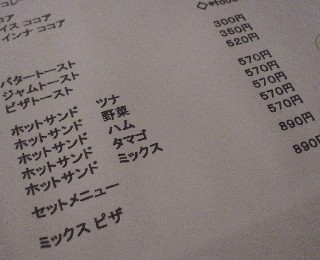 イス ココア
インナ ココア
バタートースト
ジャムトースト
ピザトースト
ホットサンド ツナ
ホットサンド 野菜
ホットサンド ハム
ホットサンド タマゴ
ホットサンド ミックス
セットメニュー
ミックス ピザ
300円
350円
520円
570円
570円
570円
570円
890円
890円